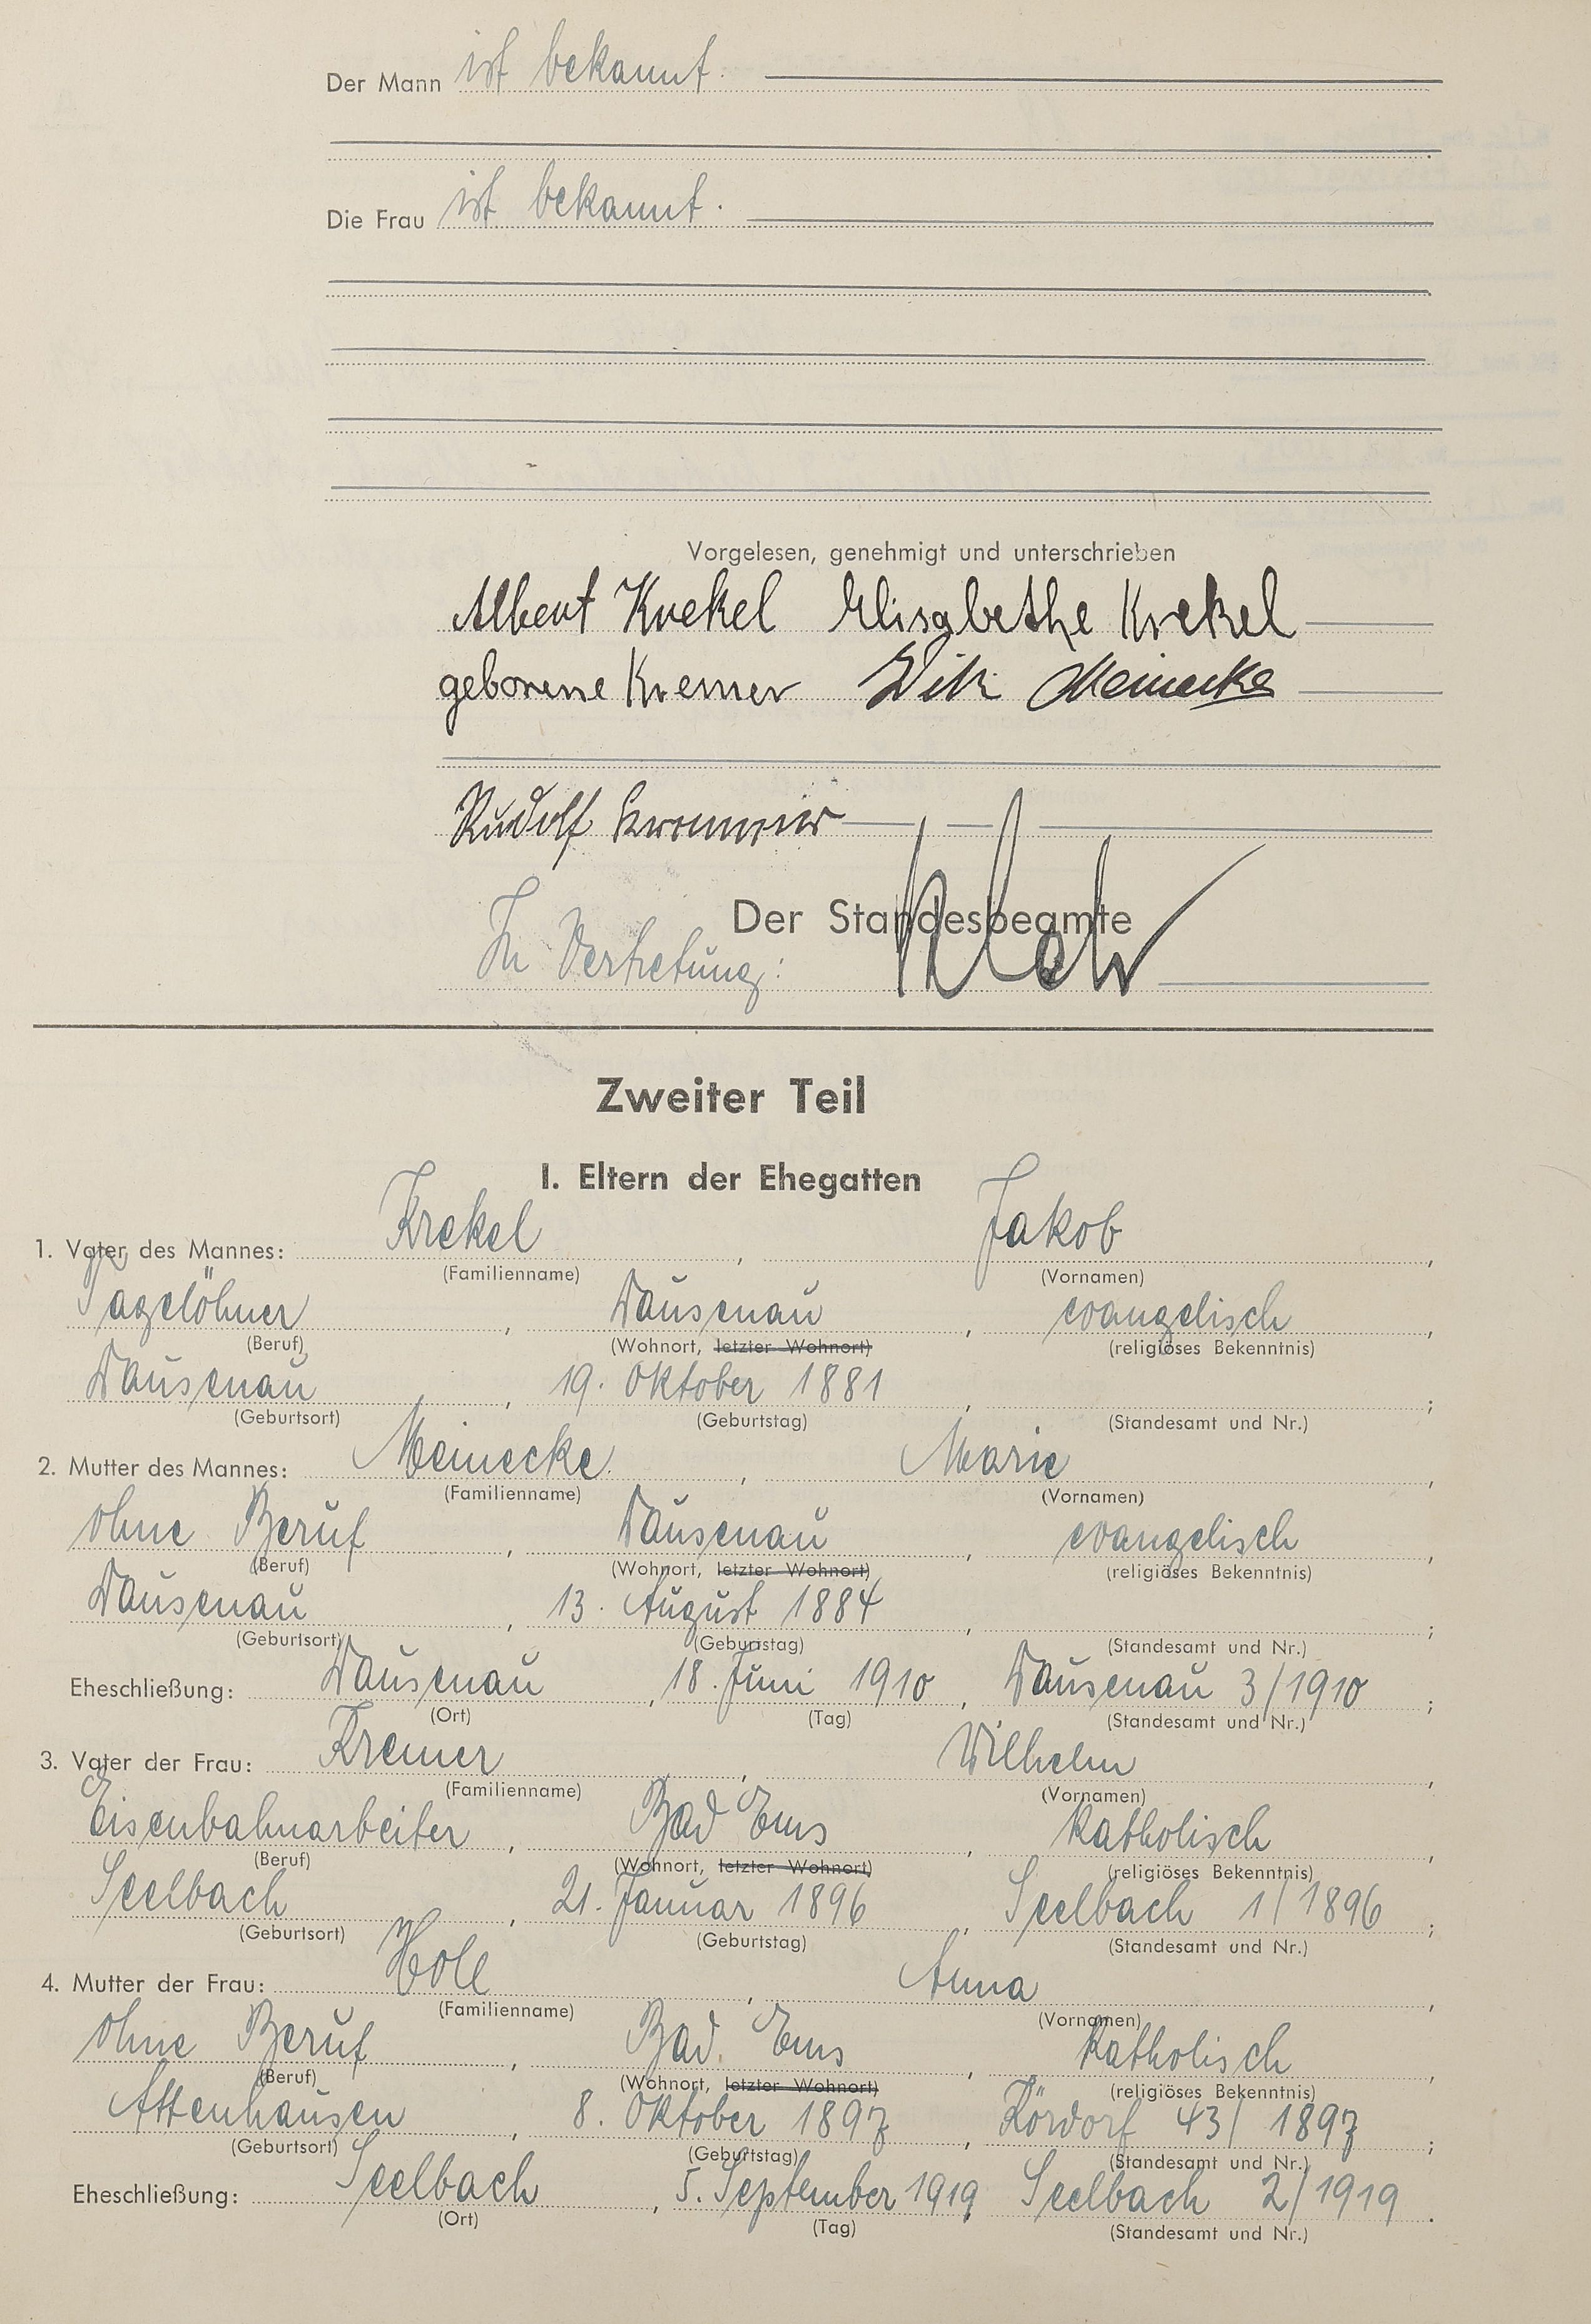 Der Mann ist bekannt.
Die Frau ist bekannt.
Vorgelesen, genehmigt und unterschrieben
Albert Krekel Elisabethe Krekel
geborene Kremer Wilh Meinecke
Rudolf
Der Standesbeamte
In Vertretung:
Zweiter Teil
I. Eltern der Ehegatten
1. Vater des Mannes: Krekel, Jakob,
(Familienname) (Vornamen)
Tagelöhner, Dausenau, evangelisch,
(Beruf) (Wohnort, letzter Wohnort) (religiöses Bekenntnis)
Dausenau, 19. Oktober 1881, ;
(Geburtsort) (Geburtstag) (Standesamt und Nr.)
2. Mutter des Mannes: Meinecke, Marie,
(Familienname) (Vornamen)
ohne Beruf, Dausenau, evangelisch,
(Beruf) (Wohnort, letzter Wohnort) (religiöses Bekenntnis)
Dausenau, 13. August 1884, ;
(Geburtsort) (Geburtstag) (Standesamt und Nr.)
Eheschließung: Dausenau, 18. Juni 1910, Dausenau 3/1910;
(Ort) (Tag) (Standesamt und Nr.)
3. Vater der Frau: Kremer, Wilhelm,
(Familienname) (Vornamen)
Eisenbahnarbeiter, Bad Ems, katholisch,
(Beruf) (Wohnort, letzter Wohnort) (religiöses Bekenntnis)
Seelbach, 21. Januar 1896, Seelbach 1/1896;
(Geburtsort) (Geburtstag) (Standesamt und Nr.)
4. Mutter der Frau: Holl, Anna,
(Familienname) (Vornamen)
ohne Beruf, Bad Ems, katholisch,
(Beruf) (Wohnort, letzter Wohnort) (religiöses Bekenntnis)
Attenhausen, 8. Oktober 1897, Kördorf 43/1897;
(Geburtsort) (Geburtstag) (Standesamt und Nr.)
Eheschließung: Seelbach, 5. September 1919, Seelbach 2/1919.
(Ort) (Tag) (Standesamt und Nr.)